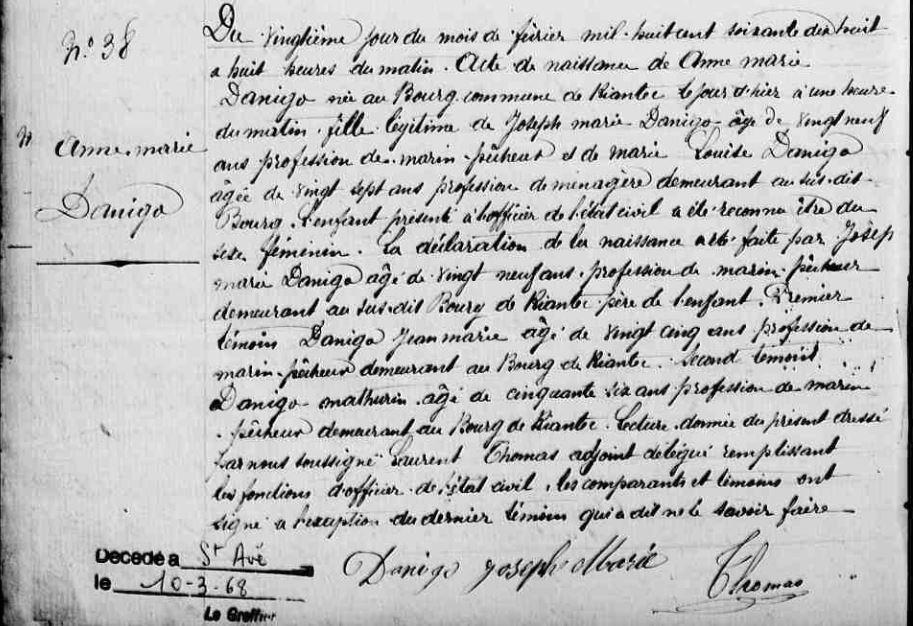 N° 38
Anne marie
Danigo
Du vingtième jour du mois de février mil huit cent soixante dix huit
a huit heures du matin. Acte de naissance de Anne marie
Danigo née au Bourg commune de Riantec le jour d'hier à une heure
du matin fille légitime de Joseph marie Danigo âgé de vingt neuf
ans profession de marin pêcheur et de marie Louise Danigo
âgée de vingt sept ans profession de ménagère demeurant au sus-dit
Bourg. L'enfant présenté à l'officier de l'état civil a été reconnu être du
sexe féminin. La déclaration de la naissance a été faite par Joseph
marie Danigo âgé de vingt neuf ans profession de marin pêcheur
demeurant au sus-dit Bourg de Riantec père de l'enfant. Premier
témoin Danigo Jean marie âgé de vingt cinq ans profession de
marin-pêcheur demeurant au Bourg de Riantec. Second témoin
Danigo mathurin âgé de cinquante six ans profession de marin
pêcheur demeurant au Bourg de Riantec. Lecture donnée du présent dressé
par nous soussigné Laurent Thomas adjoint délégué remplissant
les fonctions d'officier de l'état civil, les comparants et témoins ont
signé a l'exception du dernier témoin qui a dit ne le savoir faire
Danigo Joseph Marie
Thomas
Decede a St Avé
le 10-3-68
Le Greffier